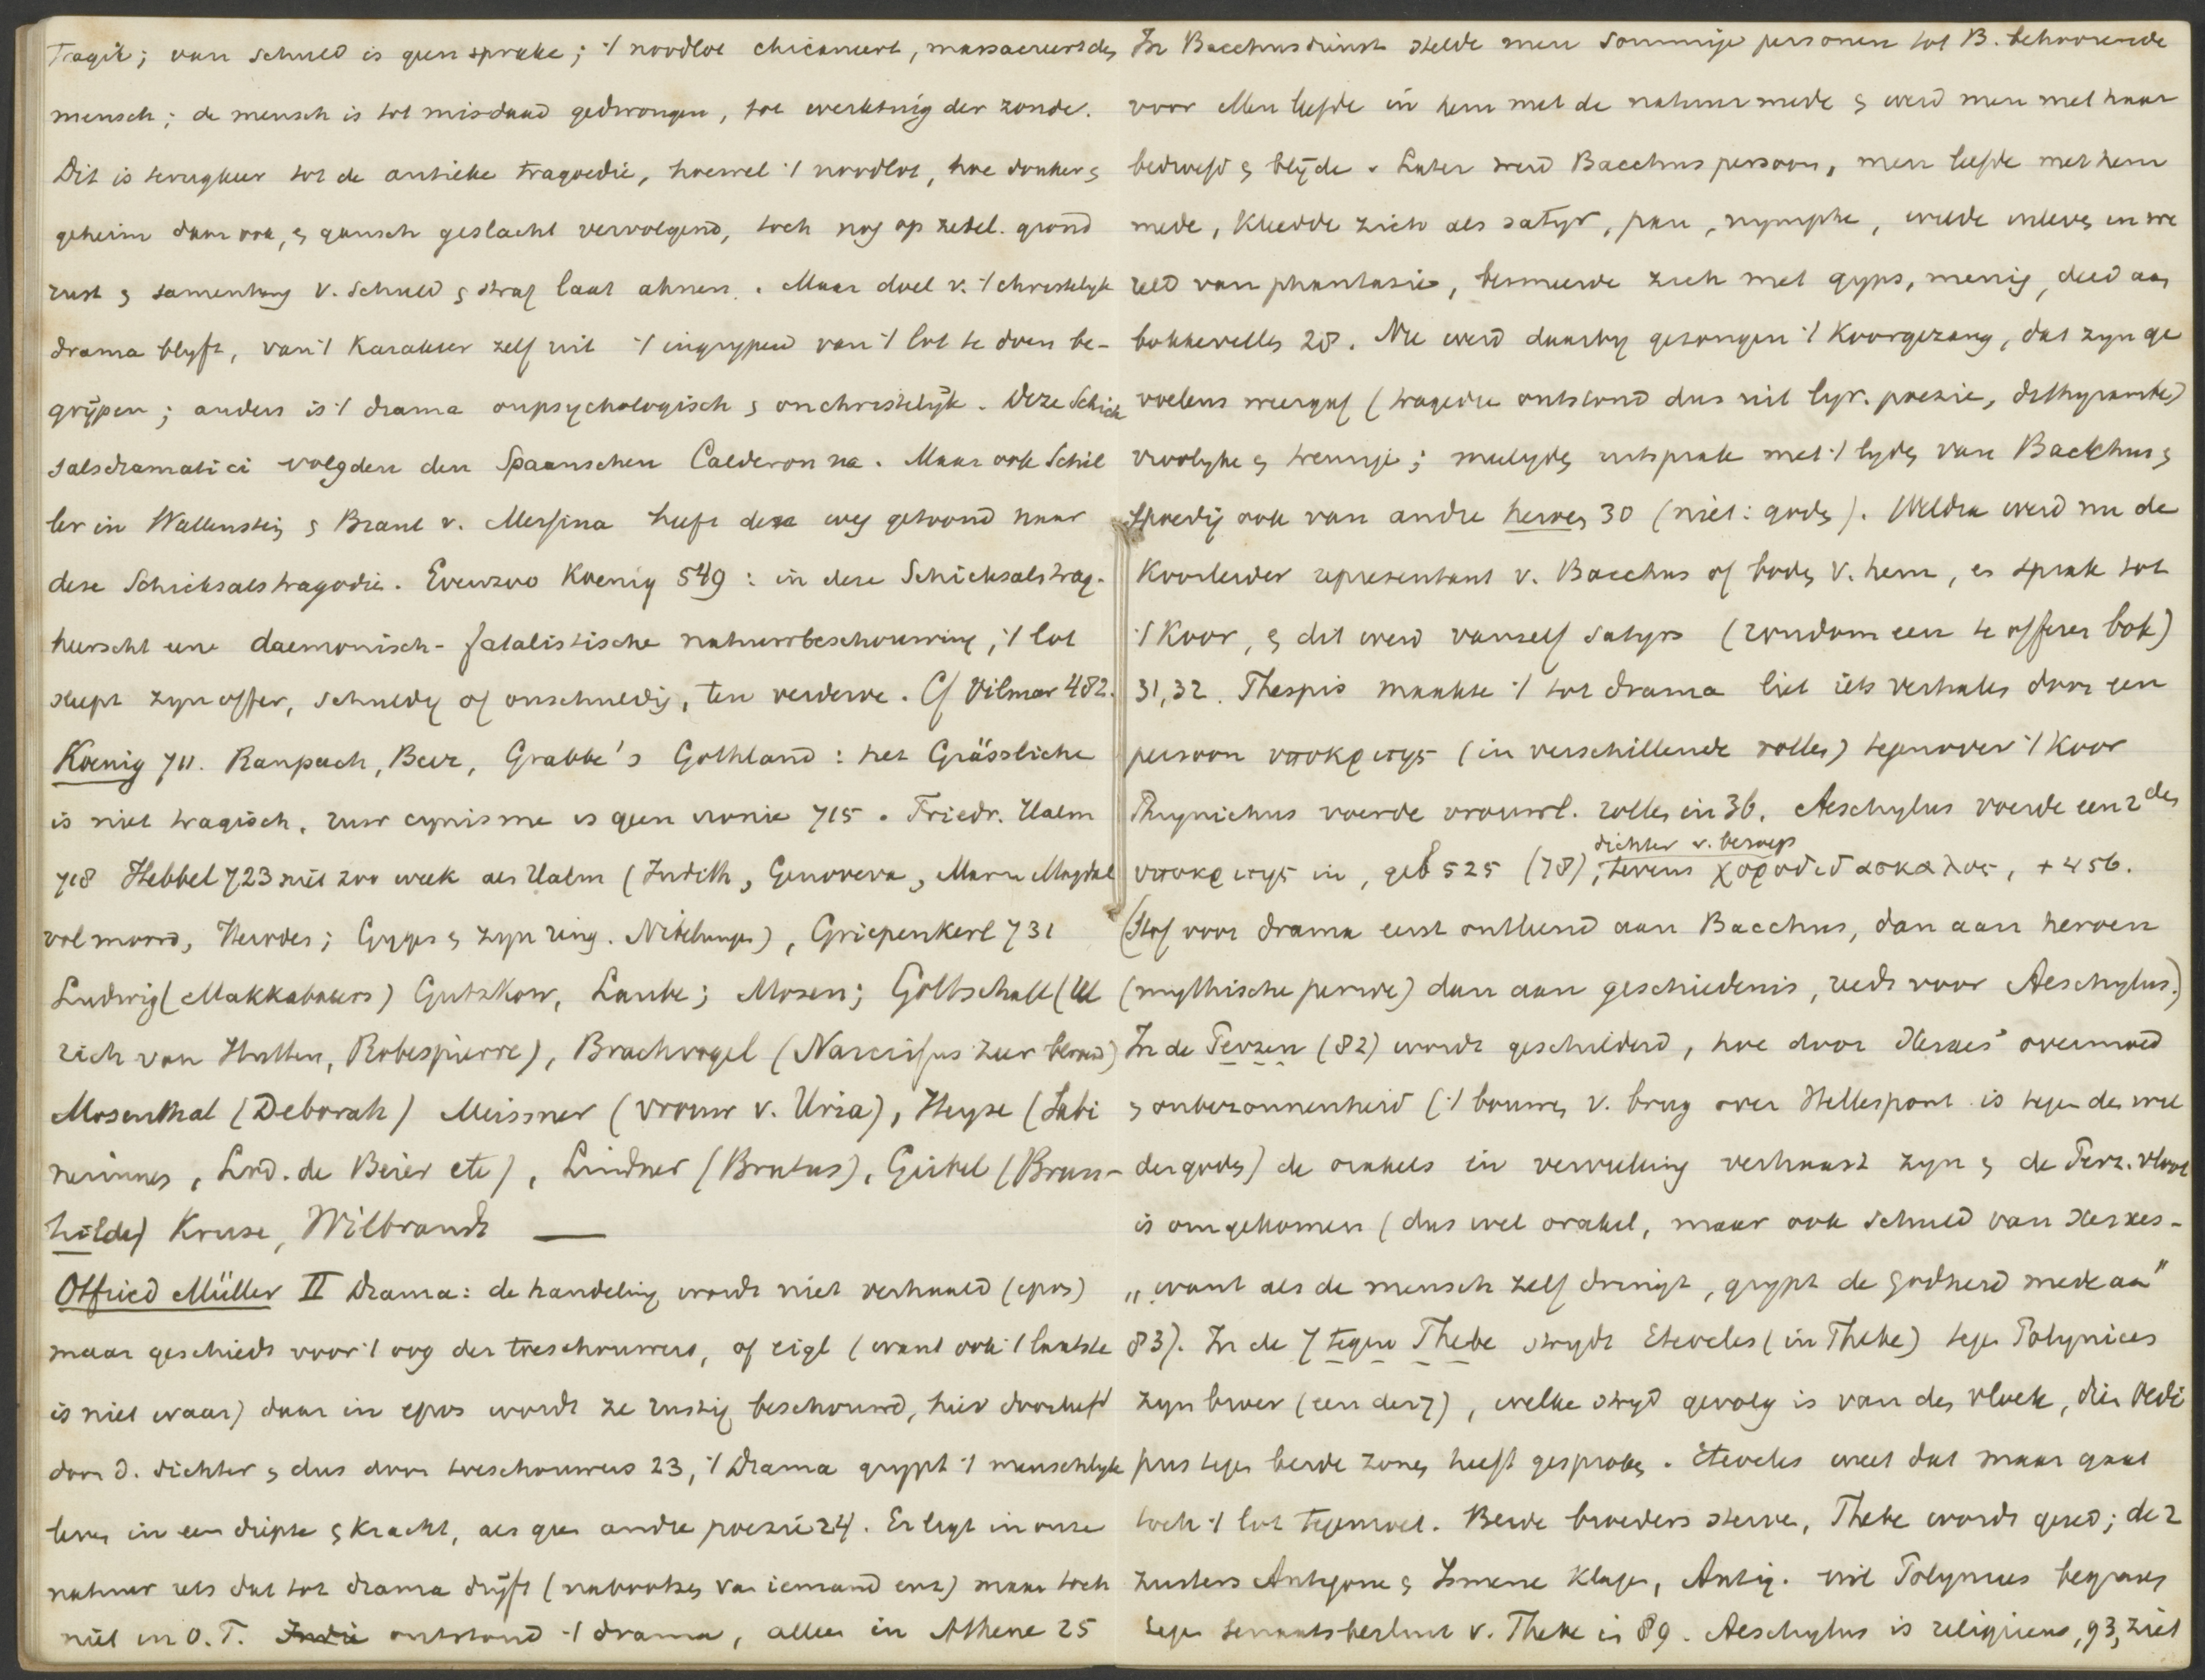 Tragik; van schuld is geen sprake; 't noodlot chicaneert, massacreert den
mensch; de mensch is tot misdaad gedwongen, tot werktuig der zonde.
Dit is terugkeer tot de antieke tragoedie, hoewel 't noodlot, hoe donker &
geheim daar ook, & gansch geslacht vervolgend, toch nog op zedel. grond
rust & samenhang v. schuld & straf laat ahnen. Maar doel v. 't christelijk
drama blyft, van 't karakter zelf uit 't ingrypen van 't lot te doen be-
grijpen; anders is 't drama onpsychologisch & onchristelijk. Deze Schick
salsdramatici volgden den Spaanschen Calderon na. Maar ook Schil
ler in Wallenstein & Braut v. Messina heeft deze weg getoond naar
deze Schicksalstragodie. Evenzoo Koenig 549: in deze Schicksalstrag.
heerscht eene daemonisch-fatalistische natuurbeschouwing, 't lot
sleept zyn offer, schuldig of onschuldig, ten verderve. Cf Vilmar 482.
Koenig 711. Raupach, Beer, Grabbe's Gothland: het Grässliche
is niet tragisch, ruw cynisme is geen ironie 715. Friedr. Halm
718 Hebbel 723 niet zoo week als Halm (Judith, Genoveva, Maria Magdal
vol moord, Herodes; Gyges & zyn ring. Nibelungen), Griepenkerl 731
Ludwig (Makkabaeers) Gutzkow, Laube; Mosen; Gottschall (Ul
rich von Hutten, Robespierre), Brachvogel (Narcissus zeer beroemd)
Mosenthal (Deborah) Meissner (vrouw v. Uria), Heyse (Sabi
nerinnen, Lod. de Beier etc), Lindner (Brutus), Geibel (Brun-
hilde) Kruse, Wilbrandt —
Otfried Müller II Drama: de handeling wordt niet verhaald (epos)
maar geschiedt voor 't oog der toeschouwers, of eigl (want ook 't laatste
is niet waar) daar in epos wordt ze rustig beschouwd, hier doorleefd
door d. dichter & dus door toeschouwers 23, 't Drama grypt 't menschlyke
leven in een diepte & kracht, als geen andre poezie 24. Er ligt in onze
natuur iets dat tot drama dryft (nabootsen van iemand enz) maar toch
niet in O.T. Indie ontstond 't drama, alleen in Athene 25
In Bacchusdienst stelde men sommige personen tot B. behoorende
voor Men leefde in hem met de natuur mede & werd men met haar
bedroefd & blijde. Later werd Bacchus persoon, men leefde met hem
mede, kleedde zich als satyr, pan, nymphe, wilde inleven in we
reld van phantasie, besmeerde zich met gyps, menig, deed aan
bokkevellen 28. Nu werd daarby gezongen 't koorgezang, dat zyn ge
voelens weergaf (tragedie ontstond dus uit lyr. poezie, dithyrambe)
vroolyke & treurige; medelyden uitsprak met 't lyden van Backhus &
spoedig ook van andre heroen 30 (niet: goden). Weldra werd nu de
koorleider representant v. Bacchus of bode v. hem, en sprak tot
't koor, & dit werd vanzelf satyrs (rondom een te offeren bok)
31,32. Thespis maakte 't tot drama liet iets verhalen door een
persoon υποκριτης (in verschillende rollen) tegenover 't koor
Phrynichus voerde vrouwl. rollen in 36. Aeschylus voerde een 2den
υποκριτης in, geb 525 (78), tevens χοροδιδασκαλος, + 456.
dichter v. beroep
(Stof voor drama eerst ontleend aan Bacchus, dan aan heroen
(mythische periode) dan aan geschiedenis, reeds voor Aeschylus.)
In de Perzen (82) wordt geschilderd, hoe door Xerxes' overmoed
& onbezonnenheid ('t bouwen v. brug over Hellespont is tegen den wil
der goden) de orakels in vervulling verhaast zyn & de Perz. vloot
is omgekomen (dus wel orakel, maar ook schuld van Xerxes-
„want als de mensch zelf dringt, grypt de godheid mede aan"
83). In de 7 tegen Thebe strydt Eteocles (in Thebe) tegen Polynices
zyn broer (een der 7), welke stryd gevolg is van den vloek, dien Oedi
pus tegen beide zonen heeft gesproken. Eteocles weet dat maar gaat
toch 't lot tegemoet. Beide broeders sterven, Thebe wordt gered; de 2
zusters Antigone & Ismene klagen, Antig. wil Polynices begraven
tegen senaatsbesluit v. Thebe in 89. Aeschylus is religieus, 93, ziet